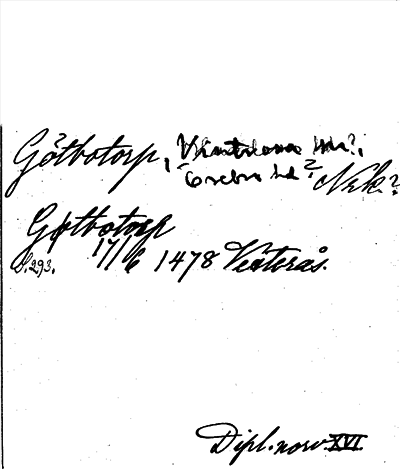 Götbotorp, Västerlövsta sn?,
Örebro hd? Nrk.?
Gøtbotorp
S. 293. 17/6 1478 Västerås.
Dipl. norv. XVI